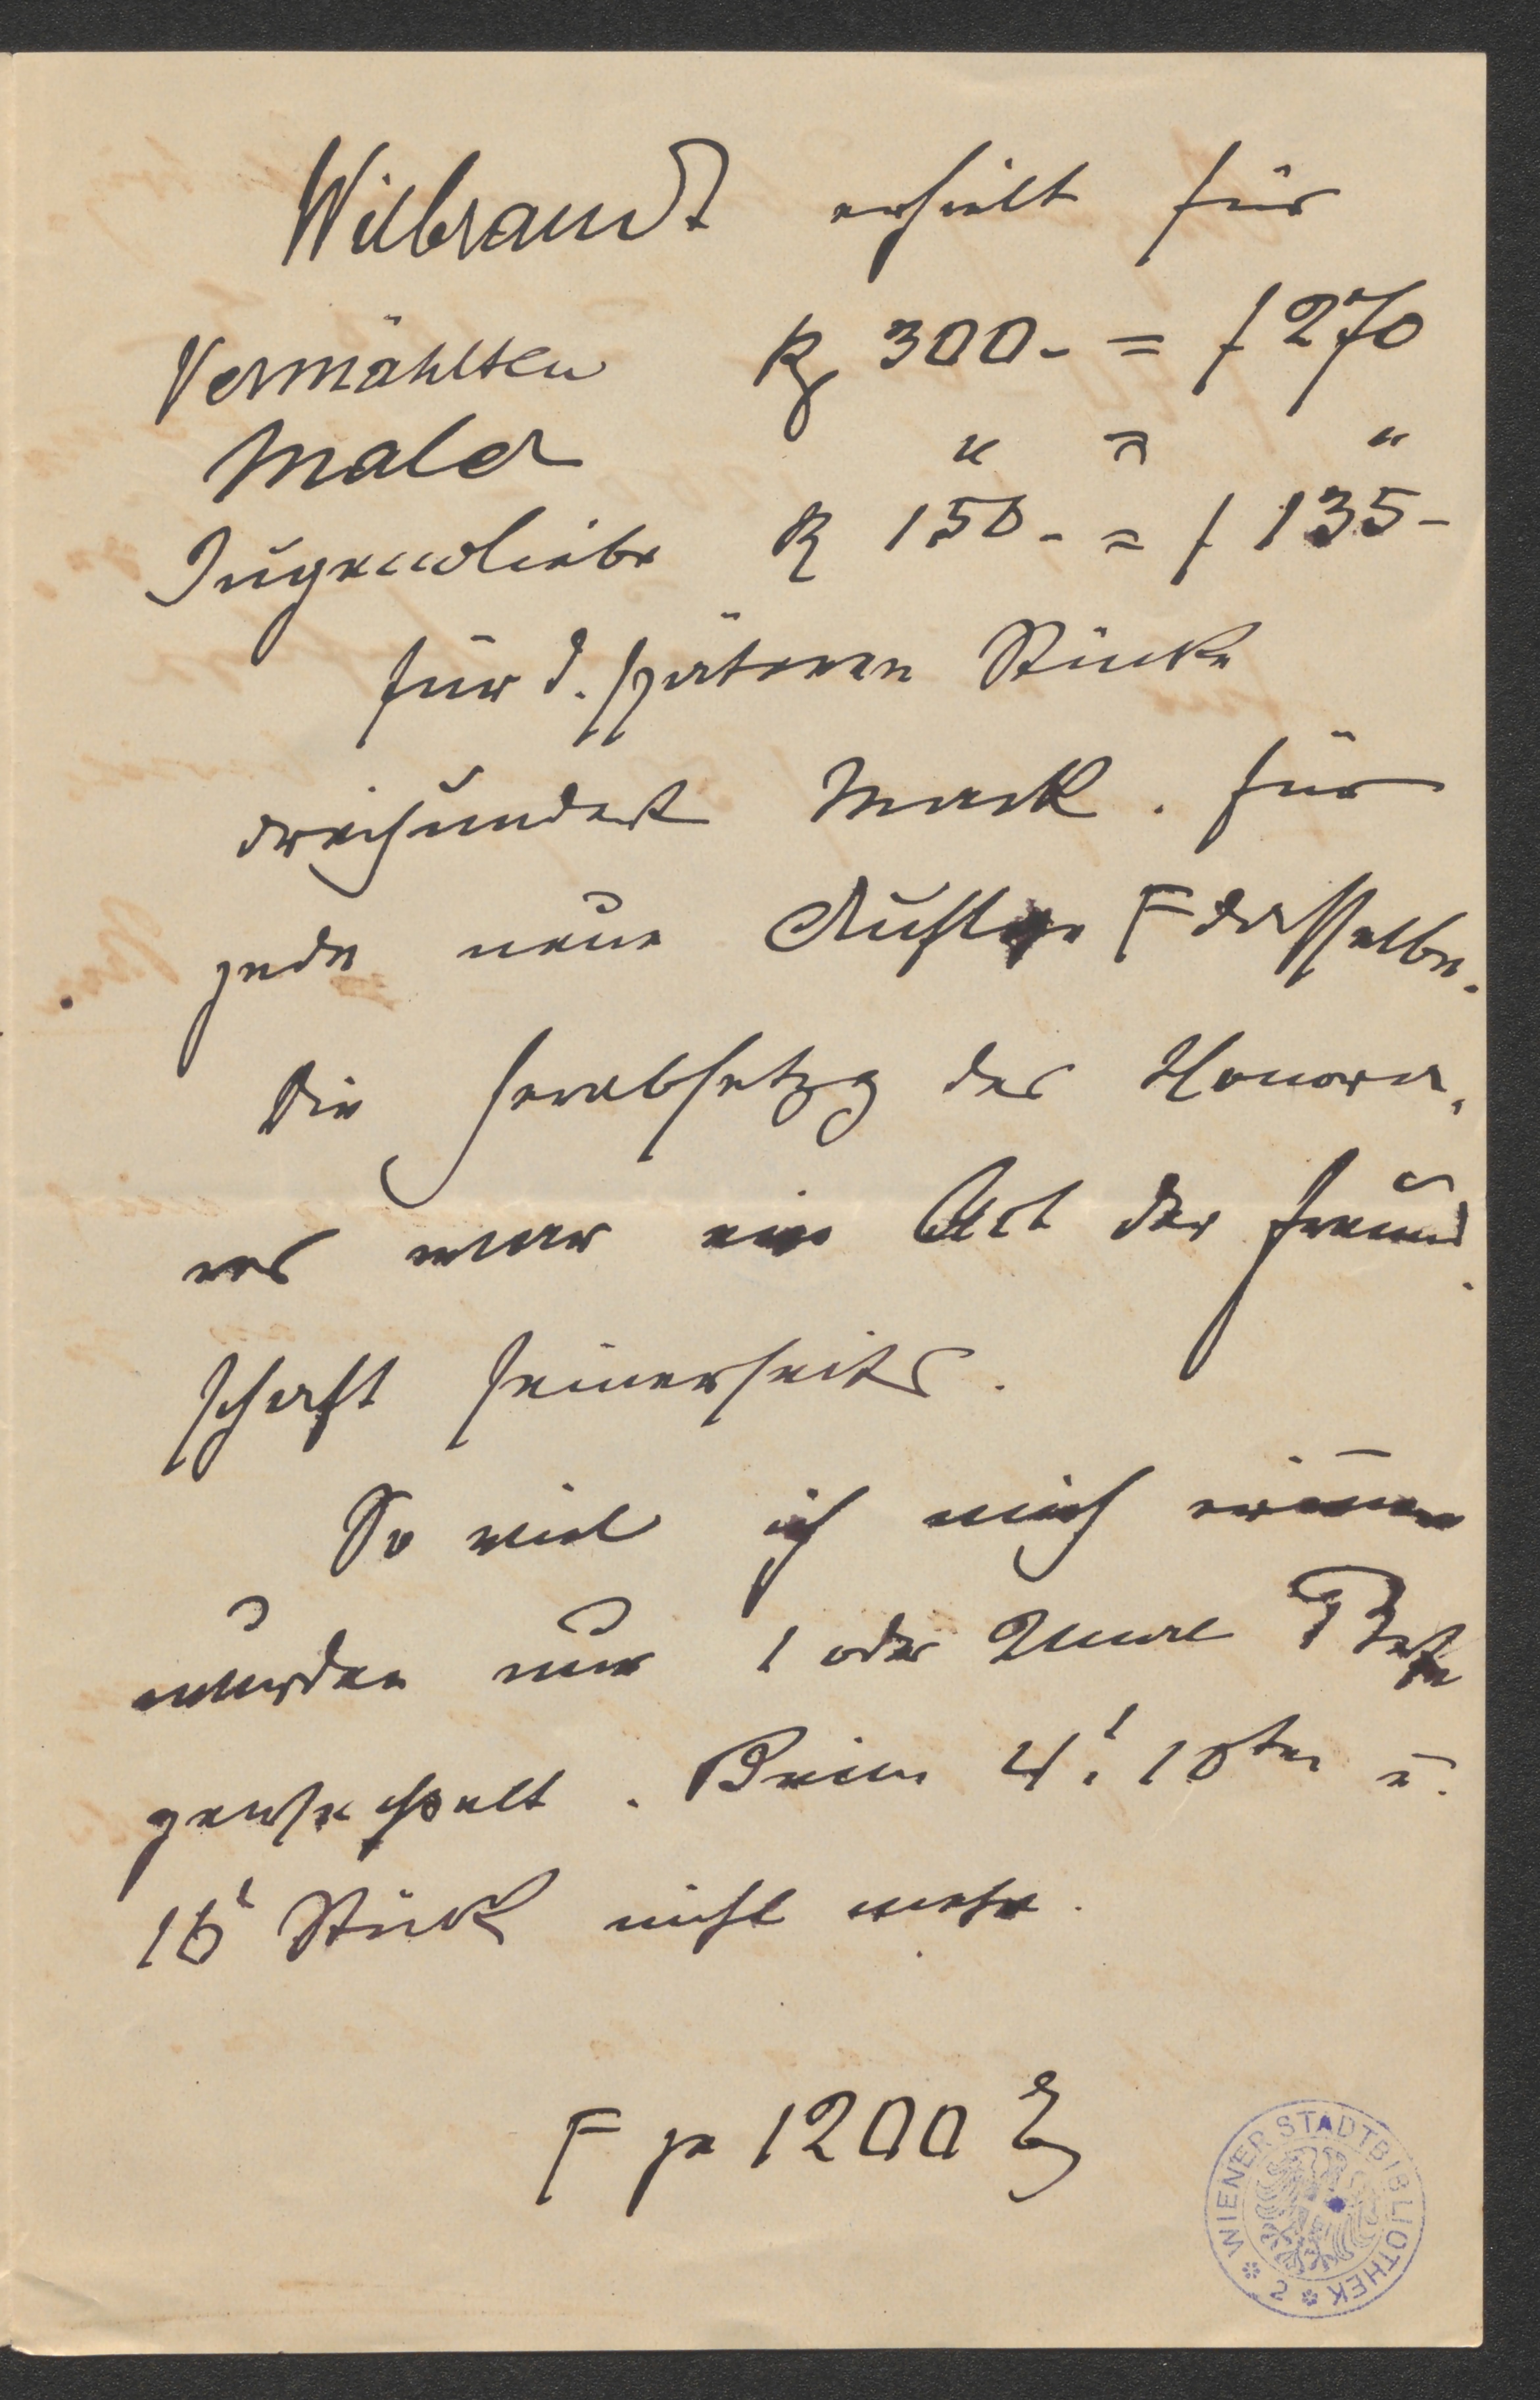 Wilbrandt erhielt für
Vermählten Rχ 300.- = f 270
Maler " = "
Jugendliebe R 150.- = f 135-
für d. späteren Stücke
dreihundert Mark. für
jede neue Auflage F dasselbe.
Die Herabsetzg des Honorar,
es war ein Act der Freund
schaft seinerseits.
So viel ich mich erin̄ere
wurden nur 1 oder 2mal
gewechselt. Beim 4. 10ten u.
16 Stück nicht mehr.
F je 1200
WIENER STADTBIBLIOTHEK